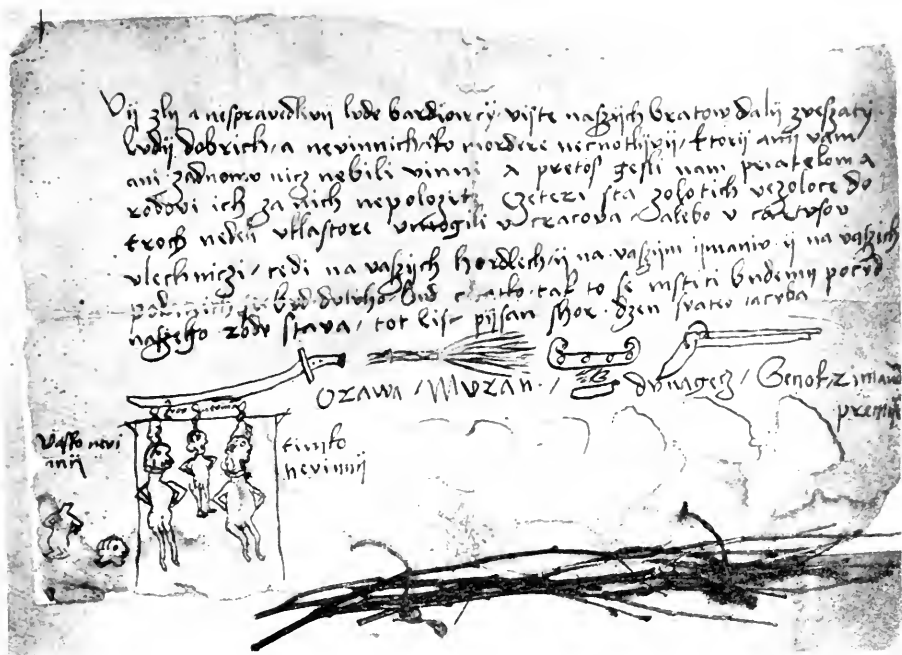 Vij zlij a nespravedlivij lvde bardiowcij. vijste naszijch bratow dalij zveszatij
lvdij dobrich, a nevinnich, iako mordere necnotlivij, ktorij anij vam
ani zadnomv nicz nebili vinni a pretos gesli nam priatelom a
rodovi ich za nich nepolozite czeteri sta zolotich vezolote do
troch nedeli v klastore v mogili v cracova alebo v cartvsov
v lechniczi, tedi na vaszijch hordlech, ij na vaszijm imaniv ij na vaszich
bvd dvlho bvd cratko, tak to se mstiti bvdemij pocvd
naszeho rodv stava, tot list pijsan shor. dzen svateo iacvba
Orawa, Mvran, dvnagecz,
vasko nevi
nnij
timko
nevinnij